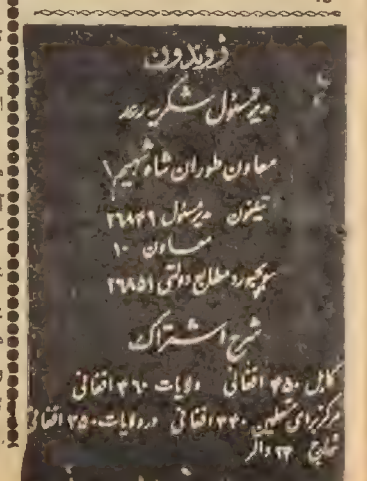 ژوندون
مدیر مسئول شکریه رعد
معاون طوران شاه شهیم
تیلفون مدیر مسئول ۲۶۸۴۹
معاون ۱۰
سویچبورد مطابع دولتی ۲۶۸۵۱
شرح اشتراک
کابل ۴۵۰ افغانی ولایات ۴۶۰ افغانی
مرکز برای متعلمین ۳۴۰ افغانی در ولایات ۳۵۰ افغانی
خارج ۲۴ دالر